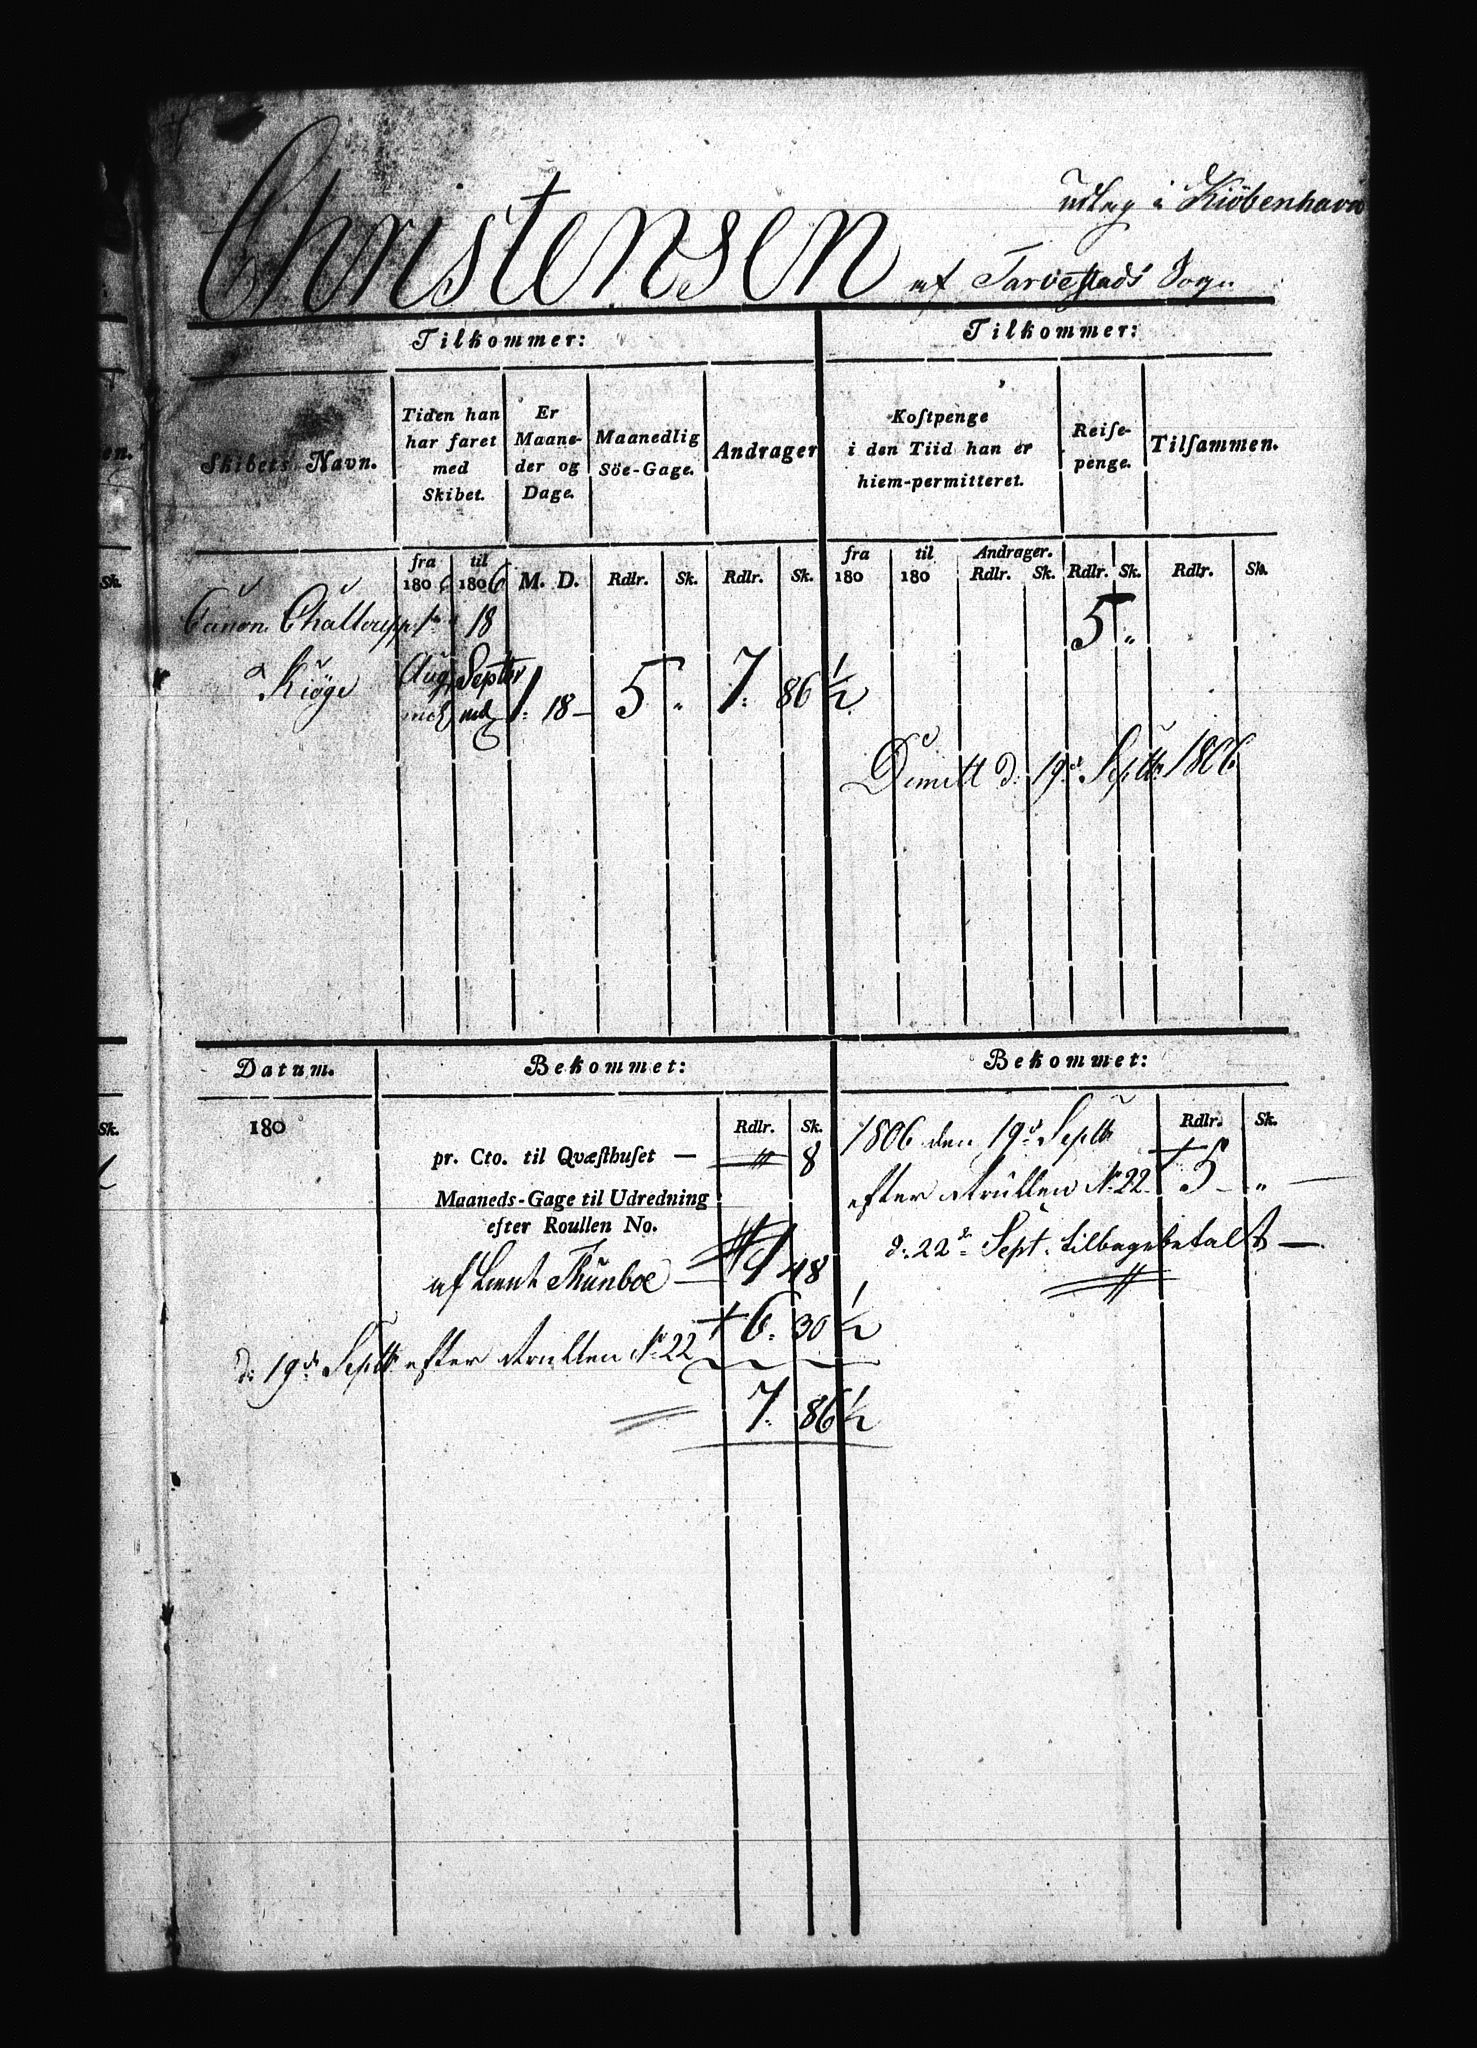 udlag i Kiöbenhavn
Christensen af Tarvestads Sogn
Tilkommer:
Tilkommer:
Skibets Navn.
Tiden han har faret med Skibet.
Er Maaneder og Dage.
Maanedlig Söe-Gage.
Andrager
Kostpenge i den Tiid han er hiem-permitteret.
Reise-penge.
Tilsammen.
fra 1806 til 1806 M. D. Rdlr. Sk. Rdlr. Sk. fra 180 til 180 Andrager. Rdlr. Sk. Rdlr. Sk. Rdlr. Sk.
Canon Challoupp 1te 18 5 „
a Kiöge Aug Septbr 1. 18 — 5 „ 7. 86 1/2
md md
Dimitt d. 19de Septbr 1806
Datum. Bekommet: Bekommet:
180 Rdlr. Sk. Rdlr. Sk.
pr. Cto. til Qvæsthuset — 〃 8
1806 den 19de Septbr
Maaneds-Gage til Udredning
efter Roullen No.
efter Rullen No 22 + 5 „ —
af Lieut Thunboe — 1 48
d. 22de Sept. tilbagebetalt —
d. 19de Septbr efter Rullen No 22 + 6. 30 1/2
7. 86 1/2
en.
Sk.
Sk.